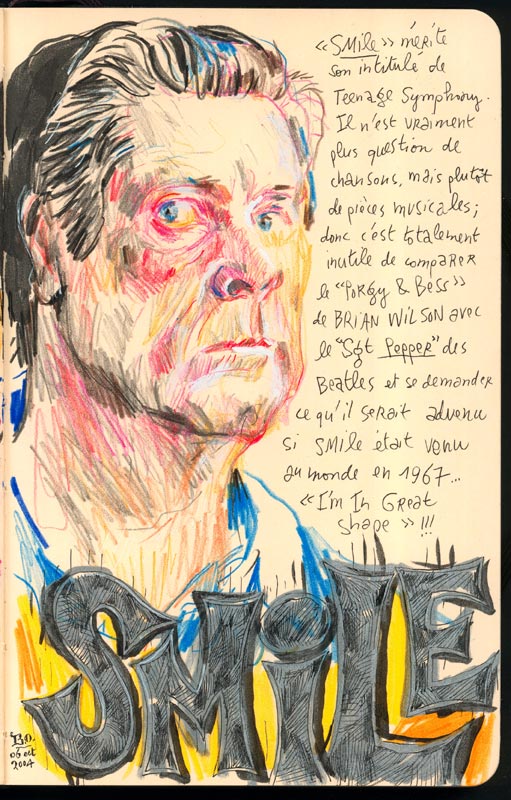 « SMile » mérite
son intitulé de
Teenage Symphony.
Il n'est vraiment
plus question de
chansons, mais plutôt
de pièces musicales;
donc c'est totalement
inutile de comparer
le "Porgy & Bess"
de BRIAN WILSON avec
le "Sgt Pepper" des
Beatles et se demander
ce qu'il serait advenu
si SMile était venu
au monde en 1967...
« I'm In Great
Shape » !!!
SMiLE
Bo.
06 oct
2004